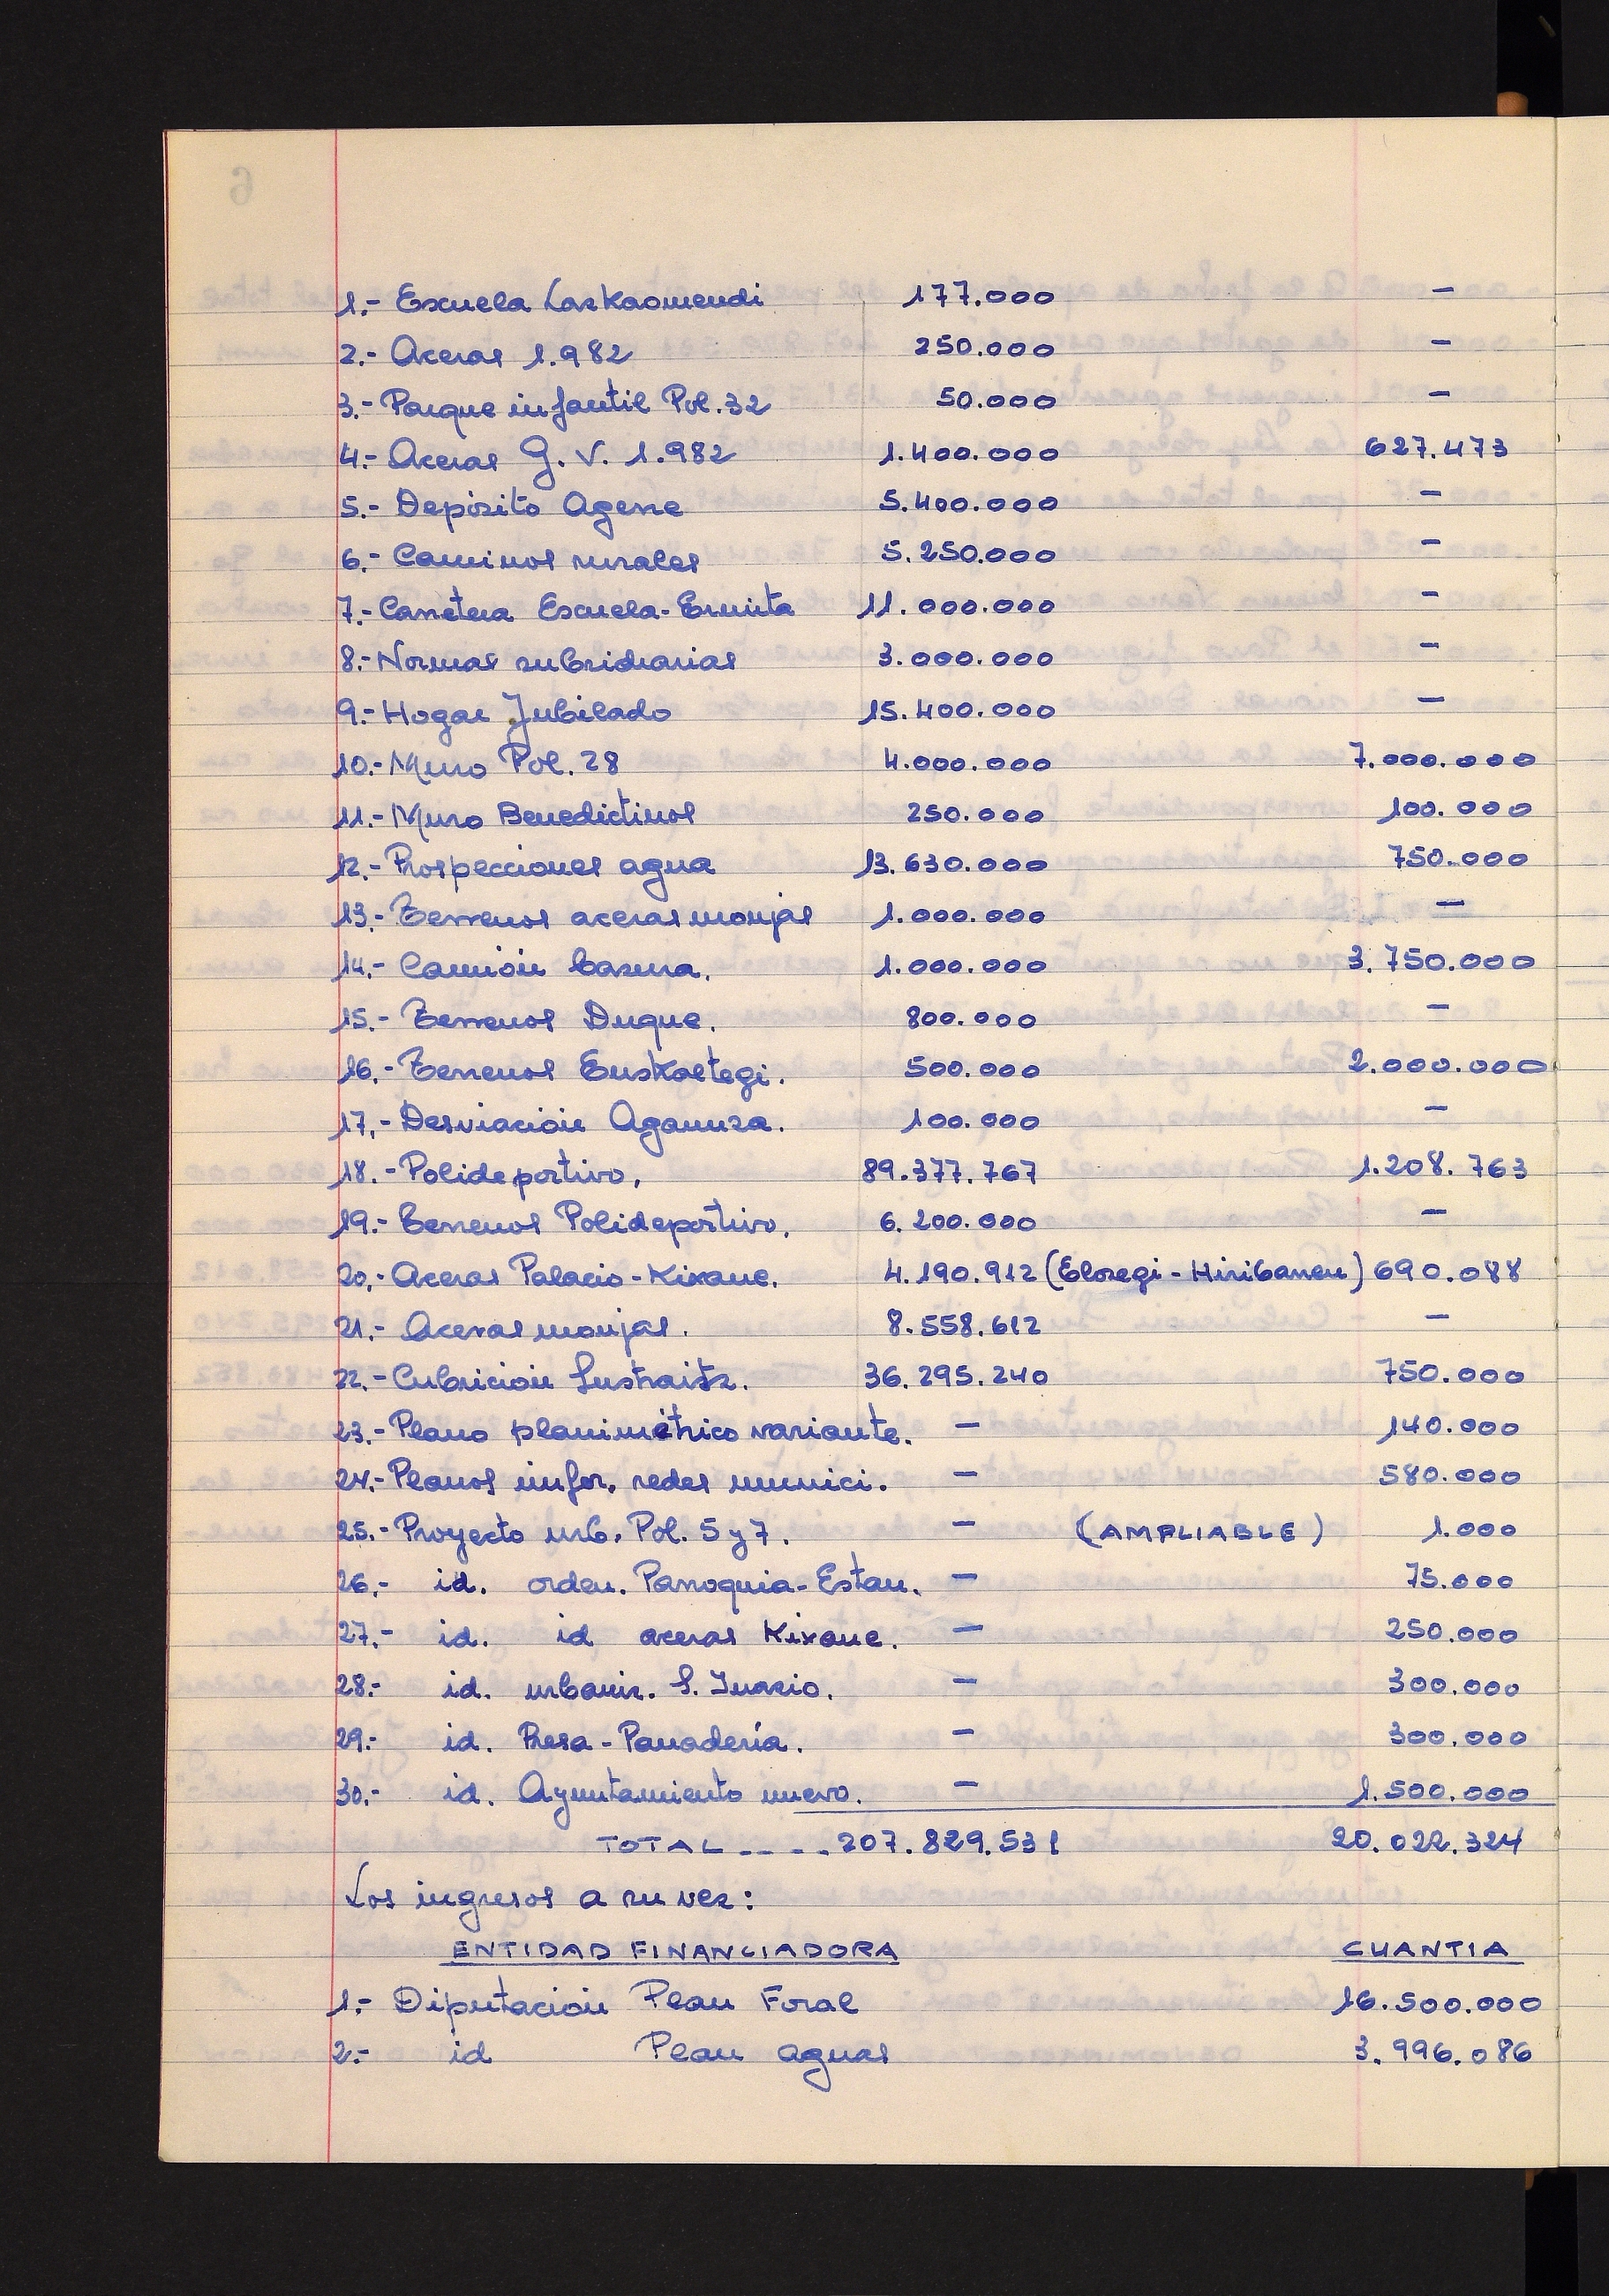 1.- Escuela Lazkaomendi 177.000 —
2.- Aceras 1.982 250.000 —
3.- Parque infantil Pol. 32 50.000 —
4.- Aceras G. V. 1.982 1.400.000 627.473
5.- Depósito Agerre 5.400.000 —
6.- Caminos rurales 5.250.000 —
7.- Carretera Escuela-Ermita 11.000.000 —
8.- Normas subsidiarias 3.000.000 —
9.- Hogar Jubilado 15.400.000 —
10.- Muro Pol. 28 4.000.000 7.000.000
11.- Muro Benedictinos 250.000 100.000
12.- Prospecciones agua 13.630.000 750.000
13.- Terrenos aceras monjas 1.000.000 —
14.- Camión basura. 1.000.000 3.750.000
15.- Terrenos Duque. 800.000 —
16.- Terrenos Euskaltegi. 500.000 2.000.000
17.- Desviación Agaunza. 100.000 —
18.- Polideportivo. 89.377.767 1.208.763
19.- Terrenos Polideportivo. 6.200.000 —
20.- Aceras Palacio - Kixane. 4.190.912 (Elosegi - Hiribarren) 690.088
21.- Aceras monjas. 8.558.612 —
22.- Cubrición Sustraitz. 36.295.240 750.000
23.- Plano planimétrico variante. — 140.000
24.- Planos infor. redes munici. — 580.000
25.- Proyecto urb. Pol. 5 y 7. — (AMPLIABLE) 1.000
26.- id. orden. Parroquia-Estan. — 75.000
27.- id. id aceras Kixane. — 250.000
28.- id. urbaniz. S. Inazio. — 300.000
29.- id. Presa - Panadería. — 300.000
30.- id. Ayuntamiento nuevo. — 1.500.000
TOTAL .... 207.829.531 20.022.324
Los ingresos a su vez:
ENTIDAD FINANCIADORA CUANTIA
1.- Diputación Plan Foral 16.500.000
2.- id Plan aguas 3.996.086